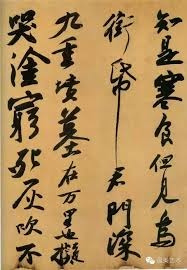 知是寒食但見烏
銜帋君門深
九重墳墓在萬里也擬
哭塗窮死灰吹不